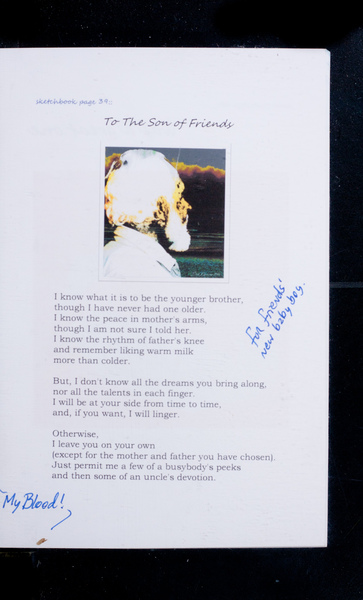 sketchbook page 39::
To The Son of Friends
I know what it is to be the younger brother,
though I have never had one older.
I know the peace in mother's arms,
though I am not sure I told her.
I know the rhythm of father's knee
and remember liking warm milk
more than colder.
for friends'
new baby boy.
But, I don't know all the dreams you bring along,
nor all the talents in each finger.
I will be at your side from time to time,
and, if you want, I will linger.
Otherwise,
I leave you on your own
(except for the mother and father you have chosen).
Just permit me a few of a busybody's peeks
and then some of an uncle's devotion.
My Blood!